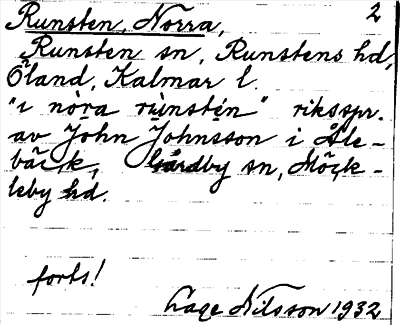 Runsten, Norra,
2
Runsten sn, Runstens hd,
Öland, Kalmar l.
"i nòra rùnstén" riksspr.
av John Johnsson i Åle-
bäck, Gårdby sn, Möck-
leby hd.
forts!
Lage Nilsson 1932